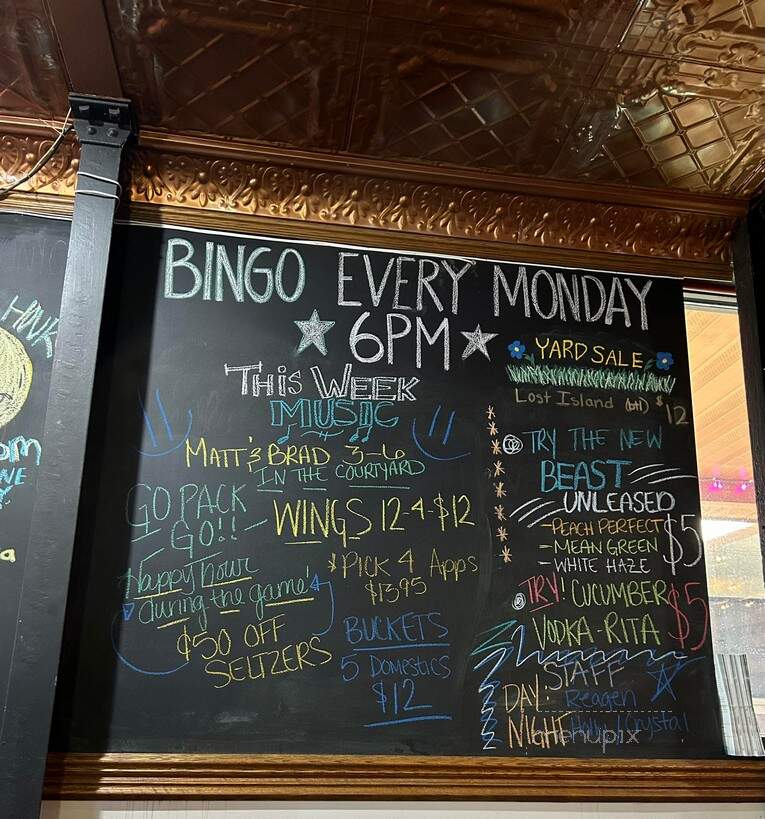 BINGO EVERY MONDAY
★ 6PM ★
THIS WEEK
MUSIC
MATT & BRAD 3-6
IN THE COURTYARD
GO PACK
GO!!
WINGS 12 4-$12
Happy hour
during the game!
$.50 OFF
SELTZERS
*PICK 4 Apps
$13.95
BUCKETS
5 DOMESTICS
$12
YARD SALE
Lost Island (btl) $12
TRY THE NEW
BEAST
UNLEASED
-PEACH PERFECT
-MEAN GREEN
-WHITE HAZE
$5
TRY! CUCUMBER
VODKA-RITA
$5
STAFF
DAY: Reagen
NIGHT Holly / Crystal
menupix